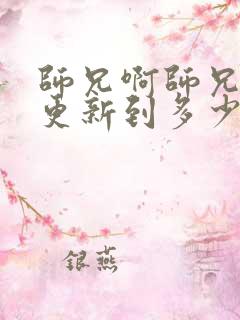 師兄啊師兄
更新到多少
銀燕